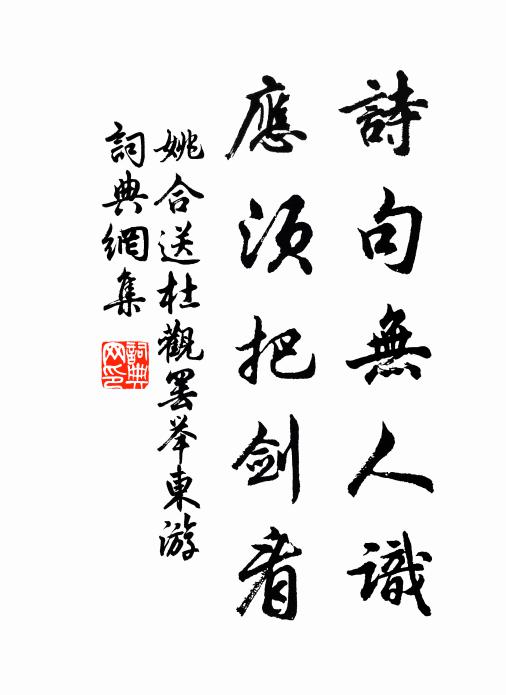 詩句無人識
應須把劍看
姚合送杜觀罢举東游
詞典網集
詞典网印